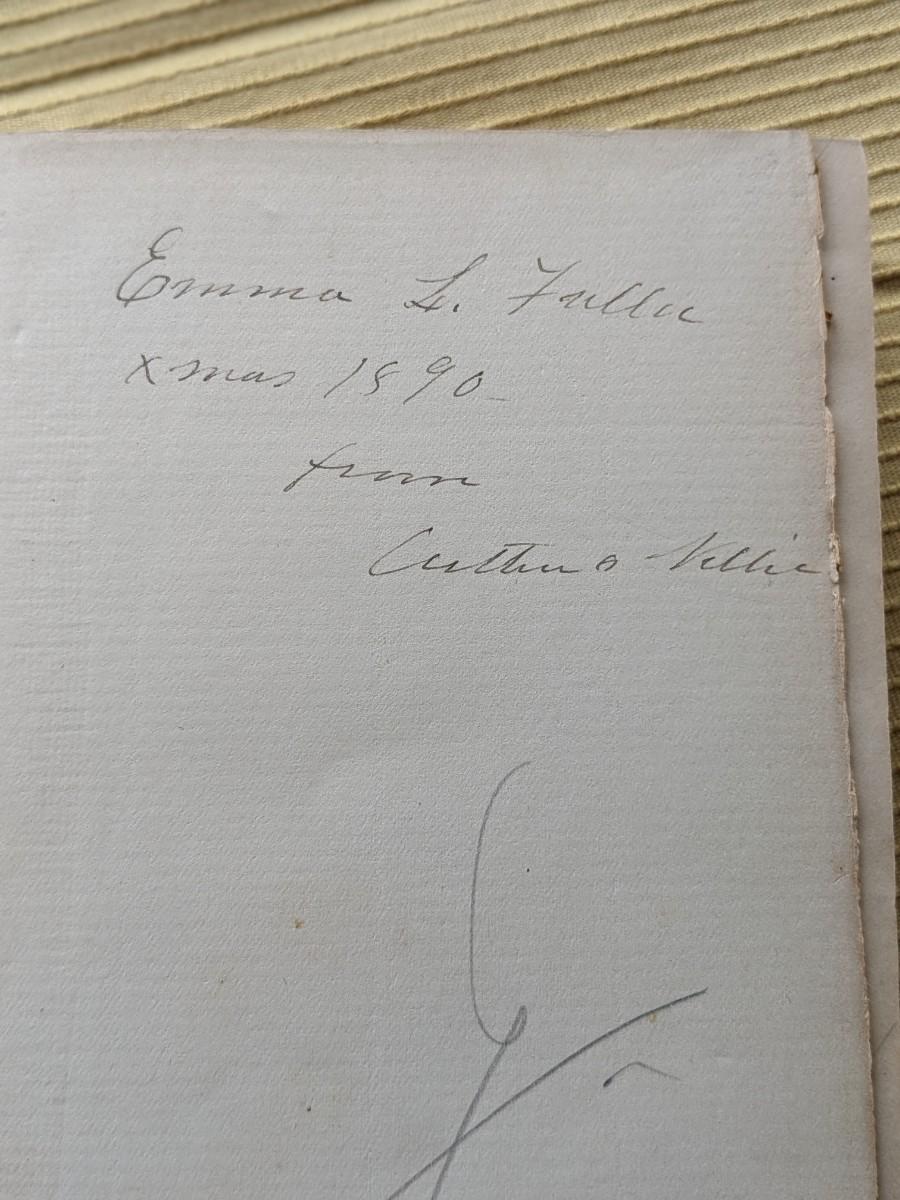 Emma L. Fuller
Xmas 1890_
from
Arthur & Nellie